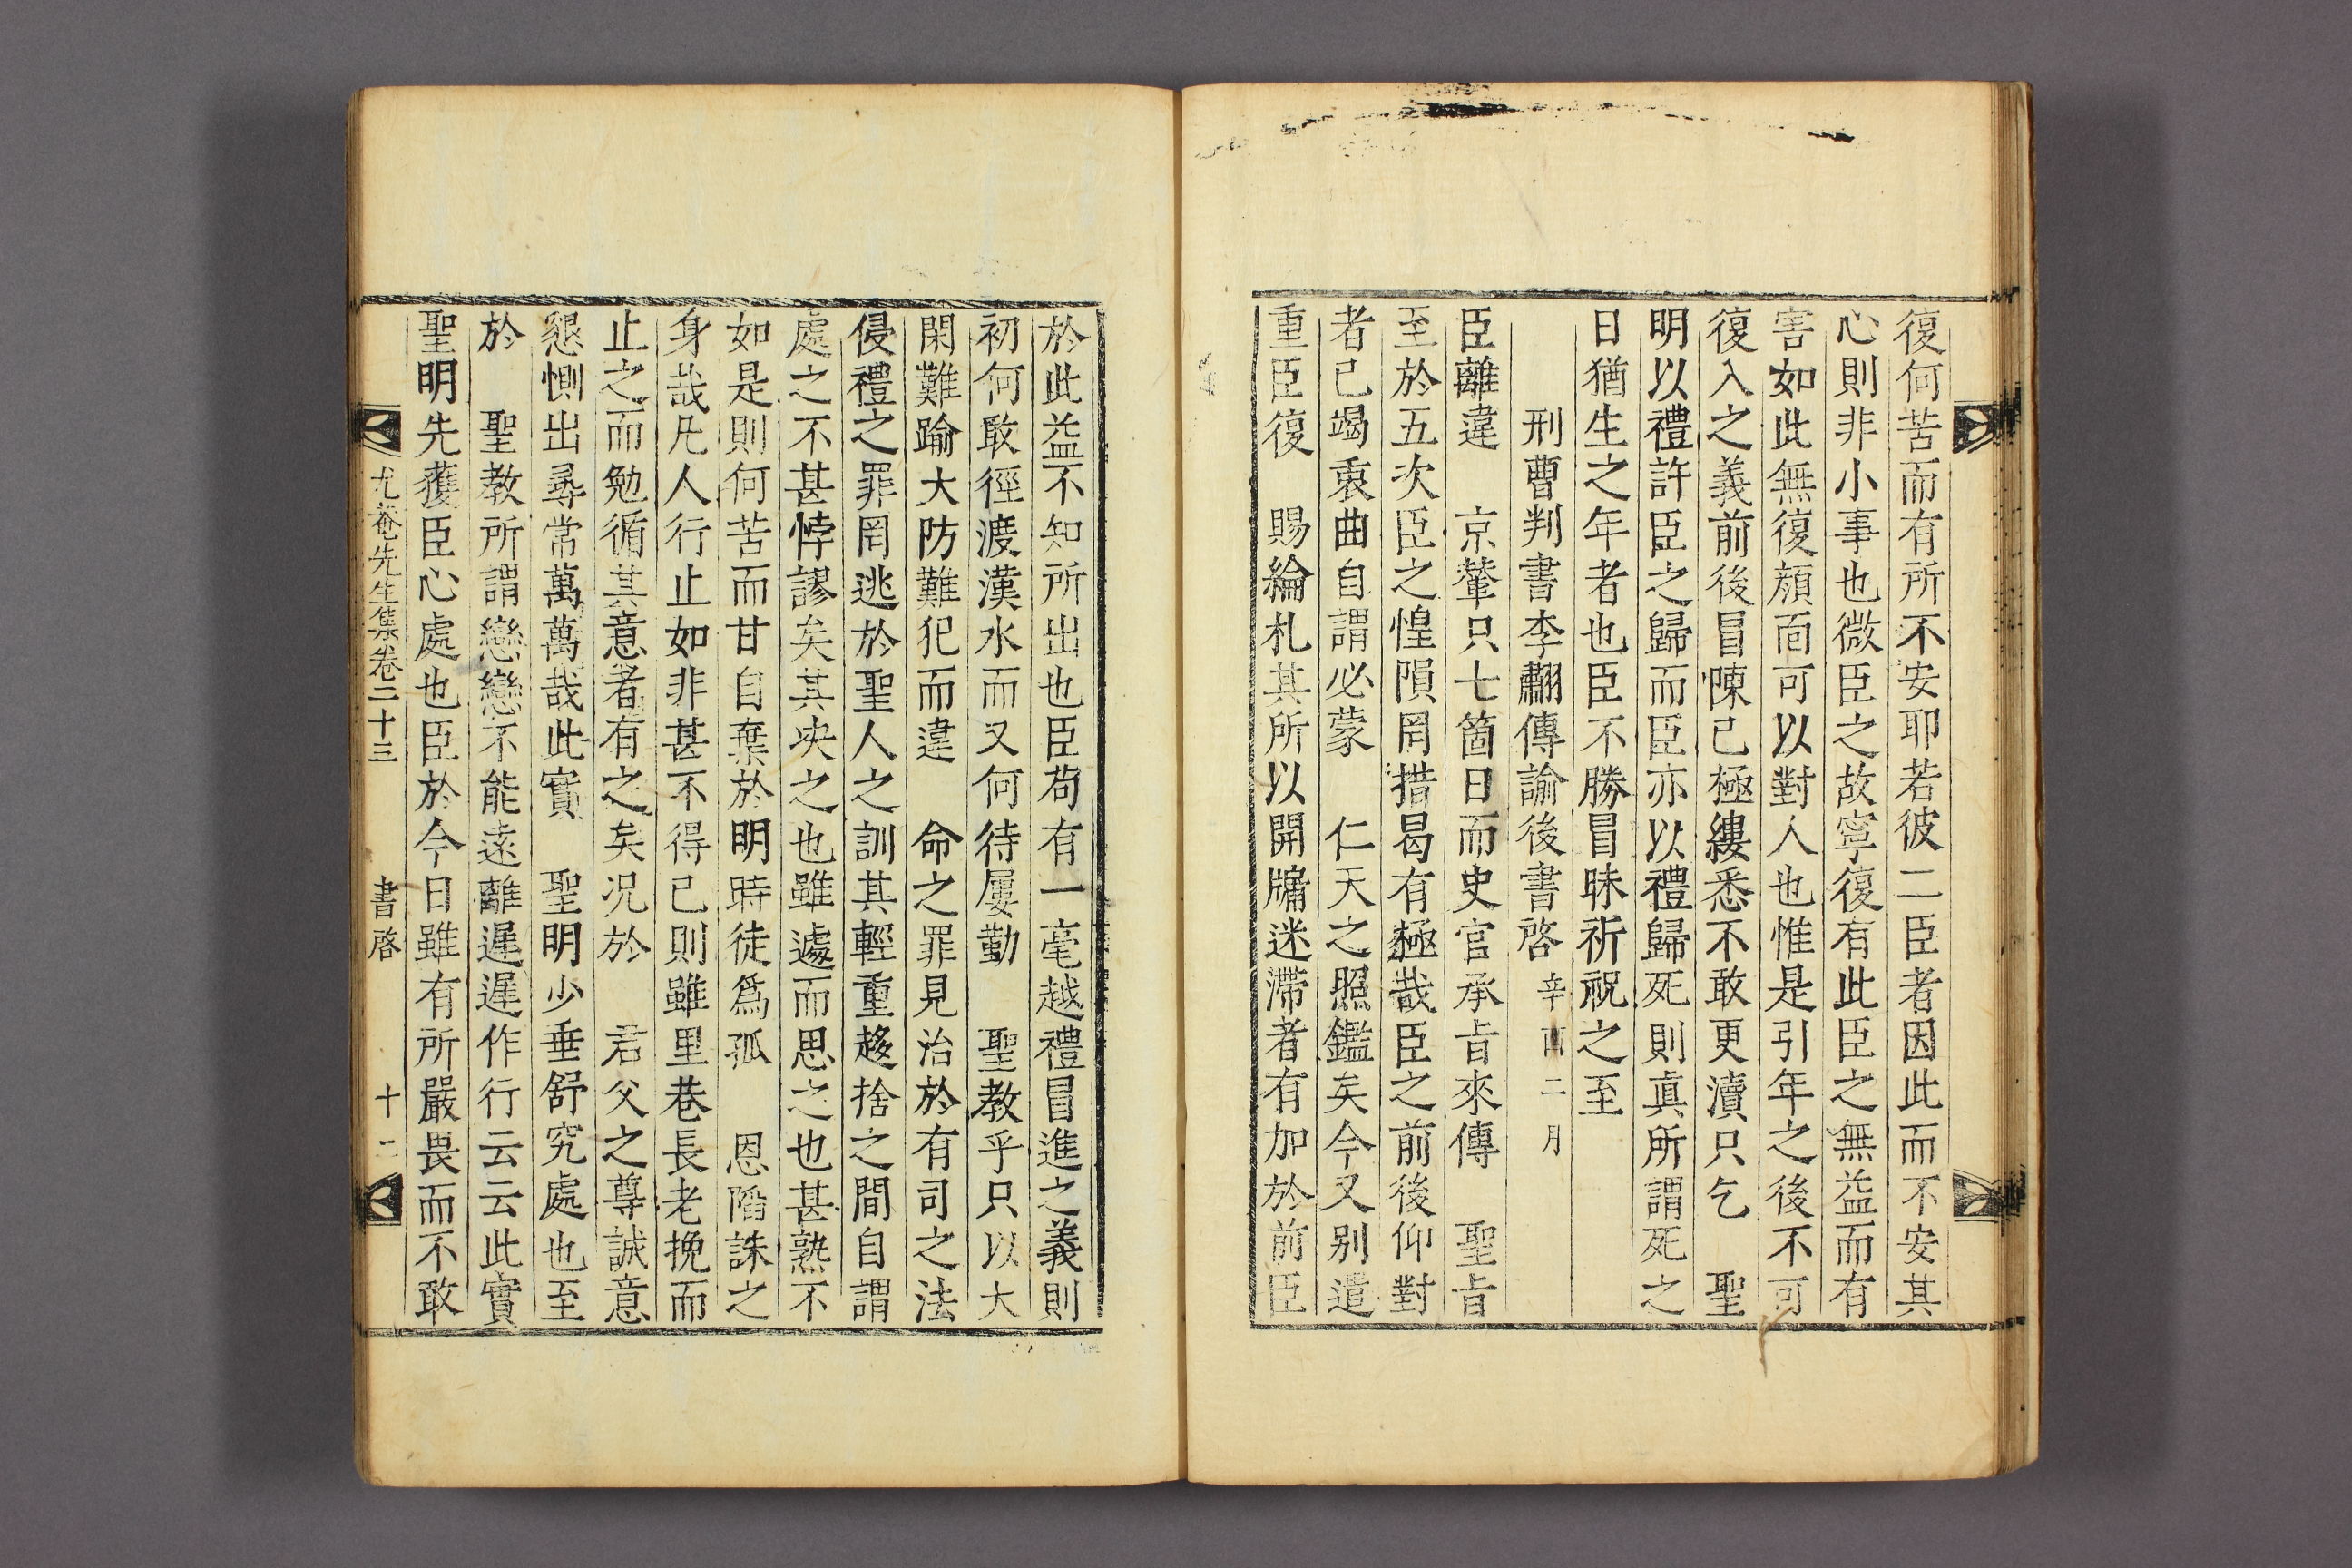 復何苦而有所不安耶若彼二臣者因此而不安其
心則非小事也微臣之故寧復有此臣之無益而有
害如此無復顔面可以對人也惟是引年之後不可
復入之義前後冒陳已極縷悉不敢更瀆只乞　聖
明以禮許臣之歸而臣亦以禮歸死則眞所謂死之
日猶生之年者也臣不勝冒昧祈祝之至
刑曹判書李䎘傳諭後書啓 辛酉二月
臣離違　京輦只七箇日而史官承旨來傳　聖旨
至於五次臣之惶隕罔措曷有極哉臣之前後仰對
者已竭衷曲自謂必蒙　仁天之照鑑矣今又別遣
重臣復　賜綸札其所以開牖迷滯者有加於前臣
於此益不知所出也臣苟有一毫越禮冒進之義則
初何敢徑渡漢水而又何待屢勤　聖教乎只以大
閑難踰大防難犯而違　命之罪見治於有司之法
侵禮之罪罔逃於聖人之訓其輕重趍捨之間自謂
處之不甚悖謬矣其决之也雖遽而思之也甚熟不
如是則何苦而甘自棄於明時徒爲孤　恩陷誅之
身哉凡人行止如非甚不得已則雖里巷長老挽而
止之而勉循其意者有之矣况於　君父之尊誠意
懇惻出尋常萬萬哉此實　聖明少垂舒究處也至
於　聖教所謂戀戀不能遠離遲遲作行云云此實
聖明先獲臣心處也臣於今日雖有所嚴畏而不敢
尤菴先生集卷二十三　書啓　十二